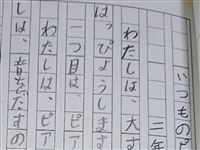 いつものピ
二年
わたしは、大す
はっぴょうします
一つ目は、ピア
わたしは、ピア
しは、音をだすの